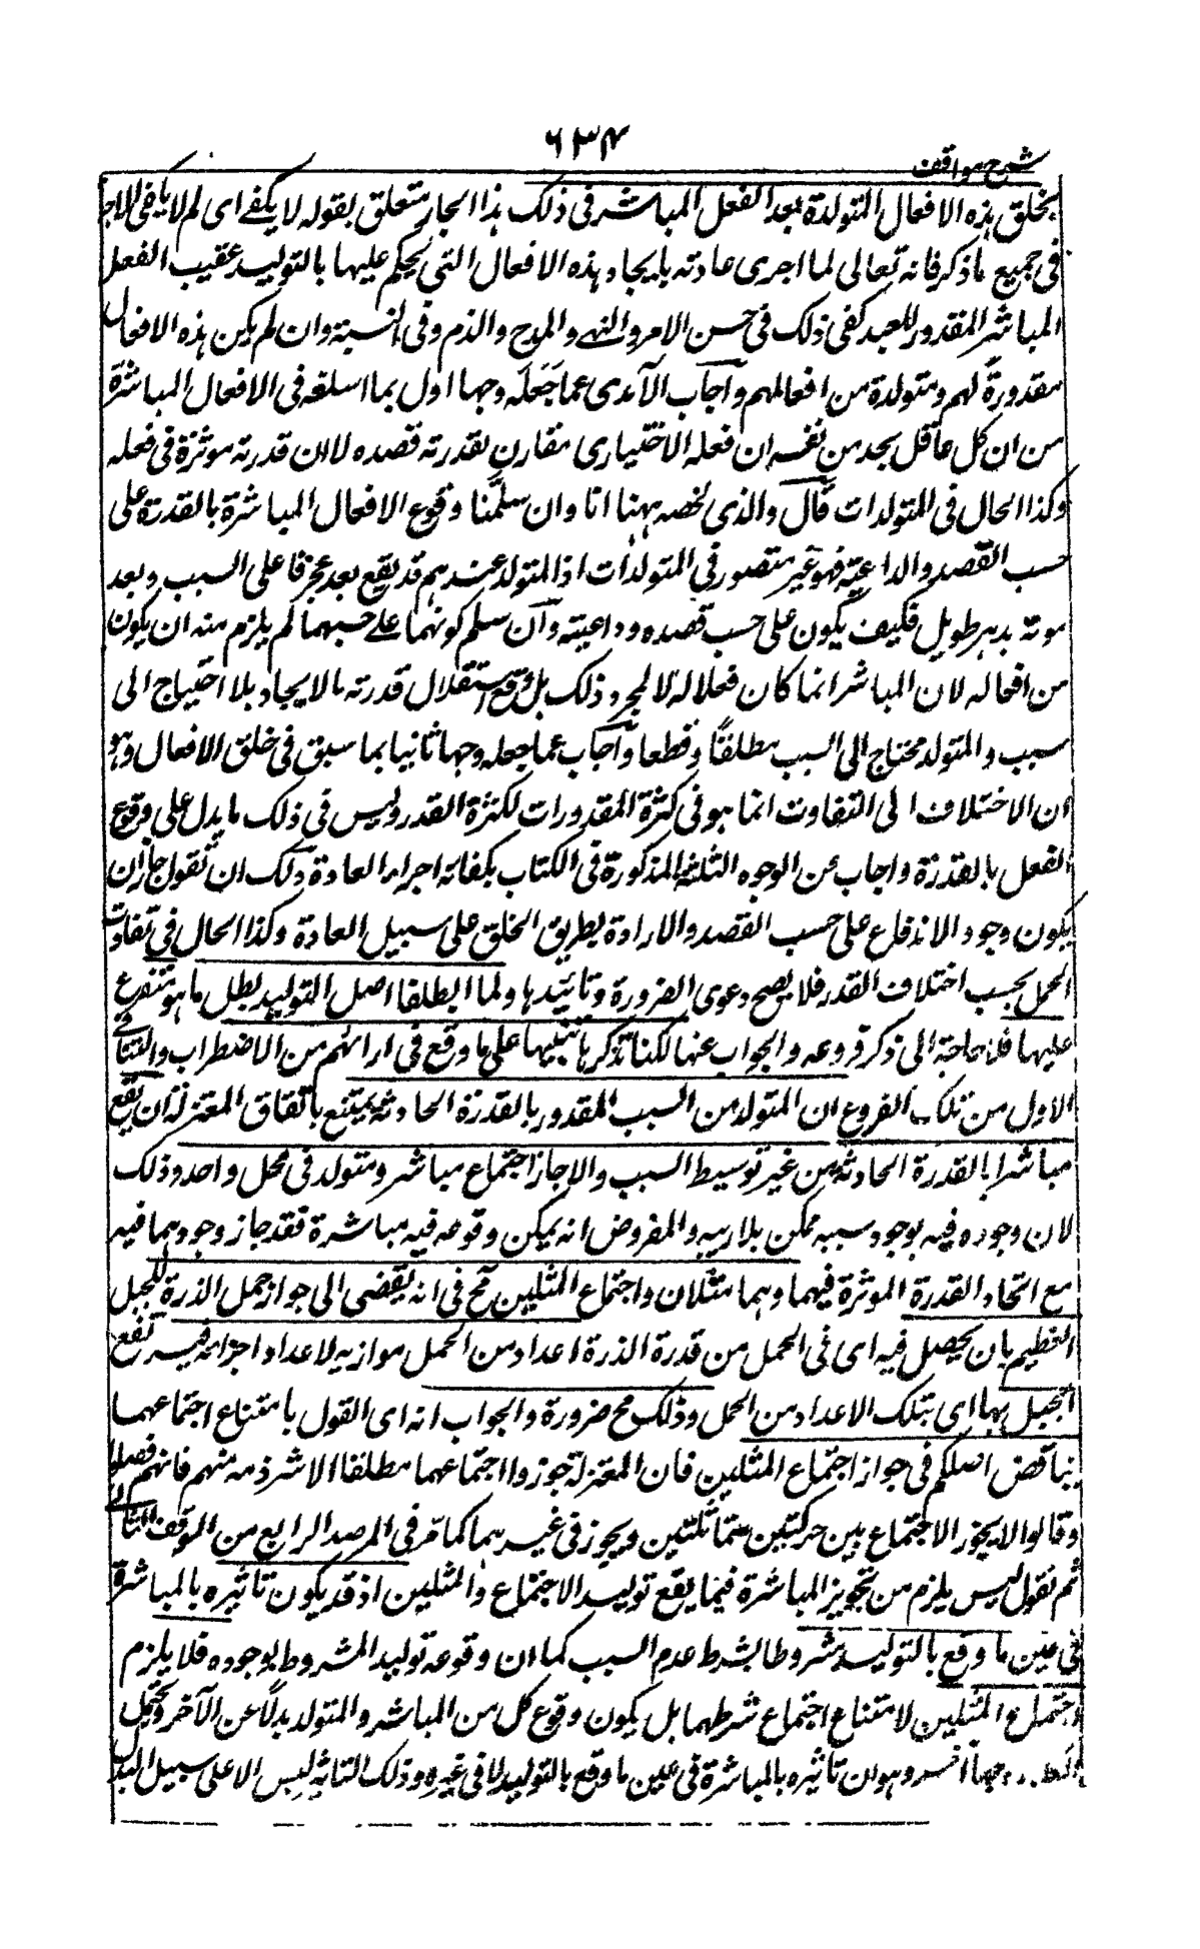 ۶۳۴
شرح مواقف
بخلق ہذہ الافعال المتولدة بعد الفعل المباشر فی ذلک ہذا الجار متعلق بقولہ لا یکفے ای لم لا یکفی الاجر
فی جمیع ما ذکر فانہ تعالی لما اجری عادتہ بایجاد ہذہ الافعال التی یحکم علیہا بالتولید عقیب الفعل
المباشر المقدور للعبد کفی ذلک فی حسن الامر والنہے والمدح والذم وفی النسبة وان لم یکن ہذہ الافعال
مقدورةً لہم ومتولدة من افعالہم واجاب الآمدی عما جَعَلہ وجہا اول بما اسلفہ فی الافعال المباشرة
من ان کل عاقل یجد من نفسہ ان فعلہ الاختیاری مقارن لقدرتہ قصدہ لا ان قدرتہ موثرة فی فعلہ
وکذا الحال فی المتولدات قال والذی نخصہ ہہنا انا وان سلمّنا وقوع الافعال المباشرة بالقدرة علی
حسب القصد والداعیة فہو غیر متصور فی المتولدات اذ المتولد عندہم قد یقع بعد عجز فاعلی السبب وبعد
موتہ بدہر طویل فکیف یکون علی حسب قصدہ وداعیتہ وان سلم کونہما علے حسبہما لم یلزم منہ ان یکون
من افعالہ لان المباشر انما کان فعلا لہ لا لمجرد ذلک بل مع استقلال قدرتہ بالایجاد بلا احتیاج الی
سبب والمتولد محتاج الی السبب مطلقًا وقطعا واجاب عما جعلہ وجہا ثانیا بما سبق فی خلق الافعال وہو
ان الاختلاف الی التفاوت انما ہو فی کثرة المقدورات لکثرة القدر ولیس فی ذلک ما یدل علی وقوع
الفعل بالقدرة واجاب عن الوجوہ الثلثة المذکورة فی الکتاب بکفایة اجراء العادة ولک ان تقول جاز ان
یکون وجود الاندفاع علی حسب القصد والارادة بطریق الخلق علی سبیل العادة وکذا الحال فی تفاوت
الحمل بحسب اختلاف القدر فلا یصح دعوی الضرورة وتائیدہا ولما ابطلنا اصل التولید بطل ما ہو متفرع
علیہا فلا حاجة الی ذکر فروعہ والجواب عنہا لکنا نذکرہا تنبیہا علی ما وقع فی ارائہم من الاضطراب والتنافی
الاول من تلک الفروع ان المتولد من السبب المقدور بالقدرة الحادثة یمتنع باتفاق المعتزلة ان یقع
مباشرا بالقدرة الحادثة من غیر توسیط السبب والا جاز اجتماع مباشر ومتولد فی محل واحد وذلک
لان وجودہ فیہ بوجود سببہ ممکن بلا ریبہ والمفروض انہ یمکن وقوعہ فیہ مباشرة فقد جاز وجودہما فیہ
مع اتحاد القدرة الموثرة فیہما وہما مثلان واجتماع المثلین مح فی انہ یفضی الی جواز حمل الذرة للجبل
العظیم بان یحصل فیہ ای فی الحمل من قدرة الذرة اعداد من الحمل موازیہ لاعداد اجزائہ فیرتفع
الجبل بہا ای بتلک الاعداد من الحمل وذلک مح ضرورة والجواب انہ ای القول بامتناع اجتماعہما
یناقض اصلکم فی جواز اجتماع المثلین فان المعتزلة جوزوا اجتماعہما مطلقا الا شرذمہ منہم فانہم فصلوا
وقالوا لا یجوز الاجتماع بین حرکتین متماثلتین ویجوز فی غیرہما کما مّر فی المرصد الرابع من الموقف الثانی
ثم نقول لیس یلزم من تجویز المباشرة فیما یقع تولید الاجتماع والمثلین اذ قد یکون تاثیرہ بالمباشرة
فی عین ما وقع بالتولید مشروطا بشرط عدم السبب کما ان وقوعہ تولید المشروط بوجودہ فلا یلزم
اجتماع المثلین لامتناع اجتماع شرطہما بل یکون وقوع کل من المباشر والمتولد بدلًا عن الآخر ویحتمل
وجہاً آخر وہو ان تاثیرہ بالمباشرة فی عین ما وقع بالتولید لا فی غیرہ وذلک التاثیر لیس الا علی سبیل البدل